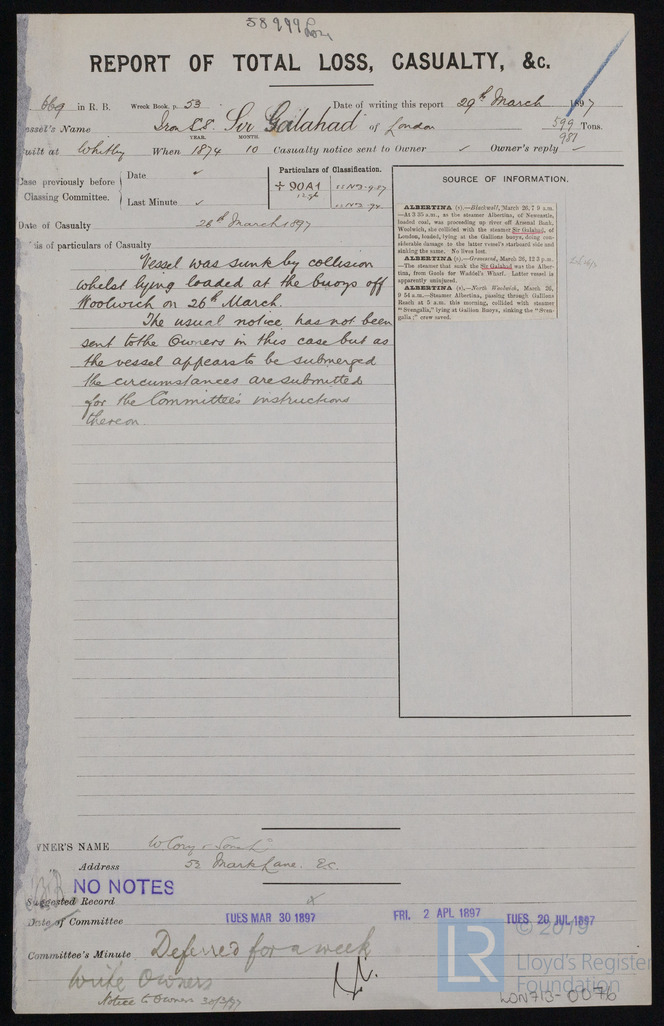 58999 Lon
REPORT OF TOTAL LOSS, CASUALTY, &c.
669 in R. B. Wreck Book, p. 53 Date of writing this report 29th March 1897
essel's Name Iron S.S. Sir Galahad of London 599 Tons.
987
YEAR. MONTH.
uilt at Whitby When 1874 10 Casualty notice sent to Owner ✓ Owner's reply –
Case previously before Classing Committee.
Date ✓
Last Minute ✓
Particulars of Classification.
+ 90A1
SOURCE OF INFORMATION.
Date of Casualty 26th March 1897
is of particulars of Casualty
Vessel was sunk by collision
whilst lying loaded at the buoys off
Woolwich on 26th March.
The usual notice has not been
sent to the Owners in this case but as
the vessel appears to be submerged
the circumstances are submitted
for the Committee's instructions
thereon.
ALBERTINA (s).—Blackwall, March 26, 7 9 a.m.
—At 3 35 a.m., as the steamer Albertina, of Newcastle,
loaded coal, was proceeding up river off Arsenal Bank,
Woolwich, she collided with the steamer Sir Galahad, of
London, loaded, lying at the Gallions buoys, doing con-
siderable damage to the latter vessel's starboard side and
sinking the same. No lives lost.
ALBERTINA (s).—Gravesend, March 26, 12 3 p.m.
—The steamer that sunk the Sir Galahad was the Alber-
tina, from Goole for Waddel's Wharf. Latter vessel is
apparently uninjured.
ALBERTINA (s).—North Woolwich, March 26,
9 54 a.m.—Steamer Albertina, passing through Gallions
Reach at 5 a.m. this morning, collided with steamer
"Svengalia," lying at Gallion Buoys, sinking the "Sven-
galia;" crew saved.
WNER'S NAME W. Cory & Son Ld
Address 53 Mark Lane. E.C.
NO NOTES
Suggested Record
Date of Committee TUES MAR 30 1897 FRI. 2 APL 1897 TUES. 20 JUL 1897
Committee's Minute Deferred for a week
Write Owners
Notice to Owners 30/3/97
LR
© 2019
Lloyd's Register
Foundation
LON713-0076